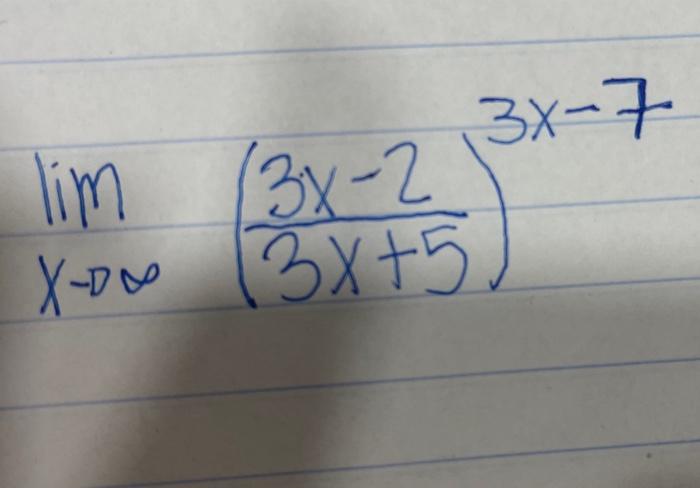 lim x→∞ ((3x-2)/(3x+5))^(3x-7)